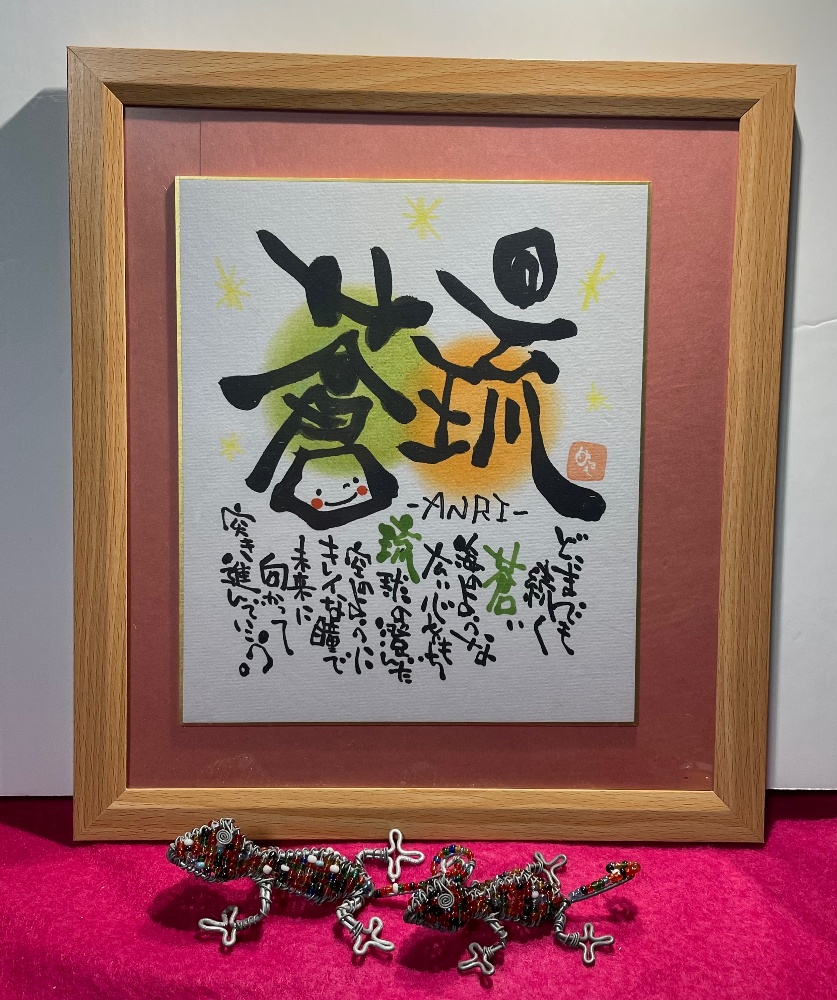 琉
蒼
-ANRI-
どこまでも
続く
蒼い
海のような
広い心をもち
琉球の澄んだ
空のように
キレイな瞳で
未来に
向かって
突き進んでいこう。